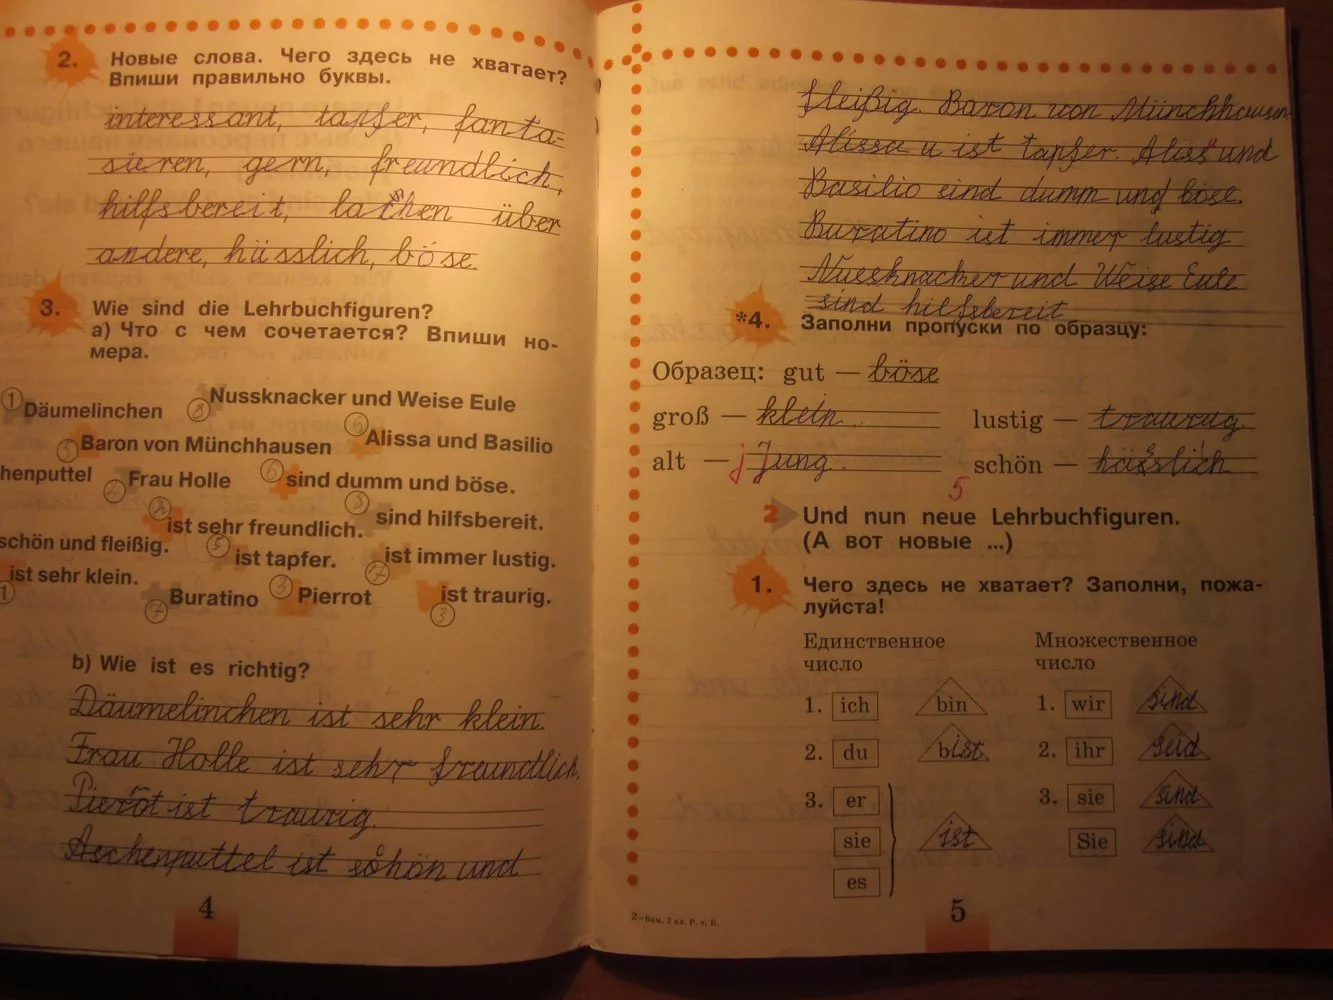 2. Новые слова. Чего здесь не хватает?
Впиши правильно буквы.
interessant, tapfer, fanta-
sieren, gern, freundlich,
hilfsbereit, lachen über
andere, hässlich, böse
3. Wie sind die Lehrbuchfiguren?
a) Что с чем сочетается? Впиши но-
мера.
1 Däumelinchen 8 Nussknacker und Weise Eule
5 Baron von Münchhausen 6 Alissa und Basilio
henputtel 2 Frau Holle 6 sind dumm und böse.
2 ist sehr freundlich. 8 sind hilfsbereit.
schön und fleißig. 5 ist tapfer. 7 ist immer lustig.
1 ist sehr klein. 7 Buratino 3 Pierrot 3 ist traurig.
b) Wie ist es richtig?
Däumelinchen ist sehr klein.
Frau Holle ist sehr freundlich.
Pierot ist traurig.
Aschenputtel ist schön und
4
fleißig. Baron von Münchhausen
Alissa u ist tapfer. Aliss und
Basilio sind dumm und böse.
Buratino ist immer lustig
Nussknacker und Weise Eule
sind hilfsbereit
*4. Заполни пропуски по образцу:
Образец: gut — böse
groß — klein. lustig — traurig
alt — j Jung. schön — hässlich
5
2 Und nun neue Lehrbuchfiguren.
(А вот новые ...)
1. Чего здесь не хватает? Заполни, пожа-
луйста!
Единственное число
Множественное число
1. ich bin 1. wir sind
2. du bist 2. ihr seid
3. er 3. sie sind
sie ist Sie sind
es
2—Бим, 2 кл. Р. т. Б.
5